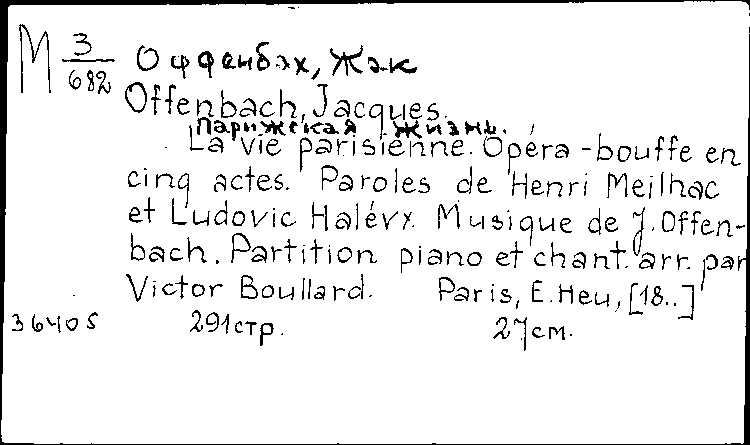 М 3/682 Оффенбах, Жак
Offenbach, Jacques.
Парижская жизнь.
La vie parisienne. Opéra-bouffe en
cinq actes. Paroles de Henri Meilhac
et Ludovic Halévy. Musique de J. Offen-
bach. Partition piano et chant arr. par
Victor Boullard. Paris, E. Heu, [18..]
36405 291стр. 27см.